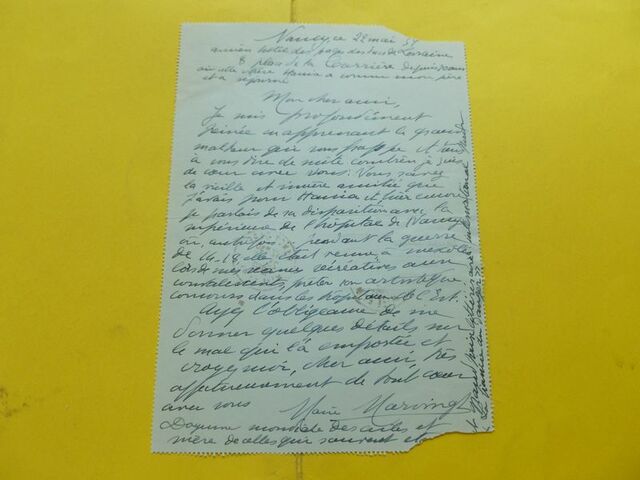 Nancy, ce 22 mai 54
ancien hôtel des pages des ducs de Lorraine
8 place de la Carrière depuis
où elle chère Hania a connu mon père
et a séjourné
Mon cher ami,
Je suis profondément
peinée en apprenant le grand
malheur qui vous frappe et tiens
à vous dire de suite combien je suis
de cœur avec vous. Vous savez
la vieille et sincère amitié que
j'avais pour Hania et hier encore
je parlais de sa disparition avec la
supérieure de l'hôpital de Nancy
où, autrefois pendant la guerre
de 14-18 elle était venue à
lors de mes récréatives aux
convalescents, prêter son artistique
concours dans les hôpitaux de l'Est.
Ayez l'obligeance de me
donner quelques détails sur
le mal qui l'a emportée et
croyez moi, cher ami, très
affectueusement de tout cœur
avec vous Marie Marvingt
Doyenne mondiale des ailes et
mère de celles qui sauvent et
grand prix international
"La fiancée du danger"